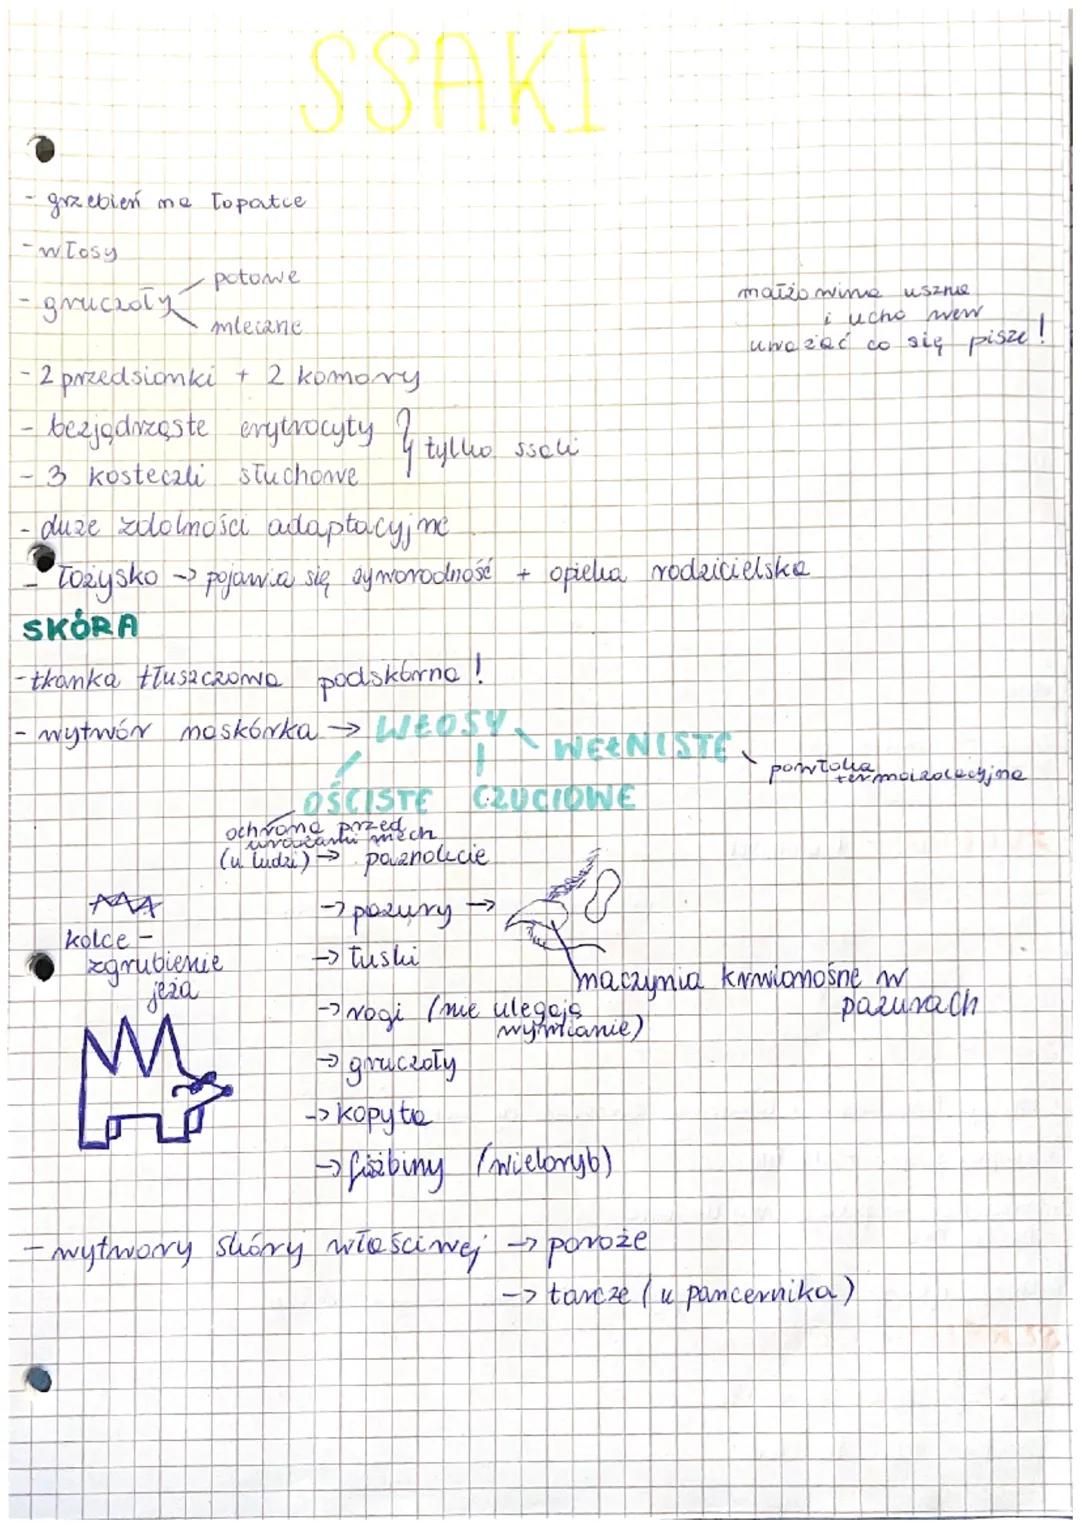 SSAKI
- grzebień na łopatce
- włosy
- gruczoły
potowe
mleczne
małżowina uszna
i ucho wew
uważać co się pisze!
- 2 przedsionki + 2 komory
- bezjądrzaste erytrocyty
tylko ssaki
- 3 kosteczki słuchowe
- duże zdolności adaptacyjne
- łożysko -> pojawia się żyworodność + opieka rodzicielska
SKÓRA
- tkanka tłuszczowa podskórna!
- wytwór naskórka -> WŁOSY
WEŁNISTE
powłoka
termoizolacyjna
OŚCISTE CZUCIOWE
ochrona przed
urazami mech
(u ludzi) -> paznokcie
-> pazury ->
kolce -
zgrubienie
jeża
-> łuski
naczynia krwionośne w
pazurach
-> rogi (nie ulegają
wymianie)
-> gruczoły
-> kopyta
-> fiszbiny (wieloryb)
- wytwory skóry właściwej -> poroże
-> tarcze (u pancernika)